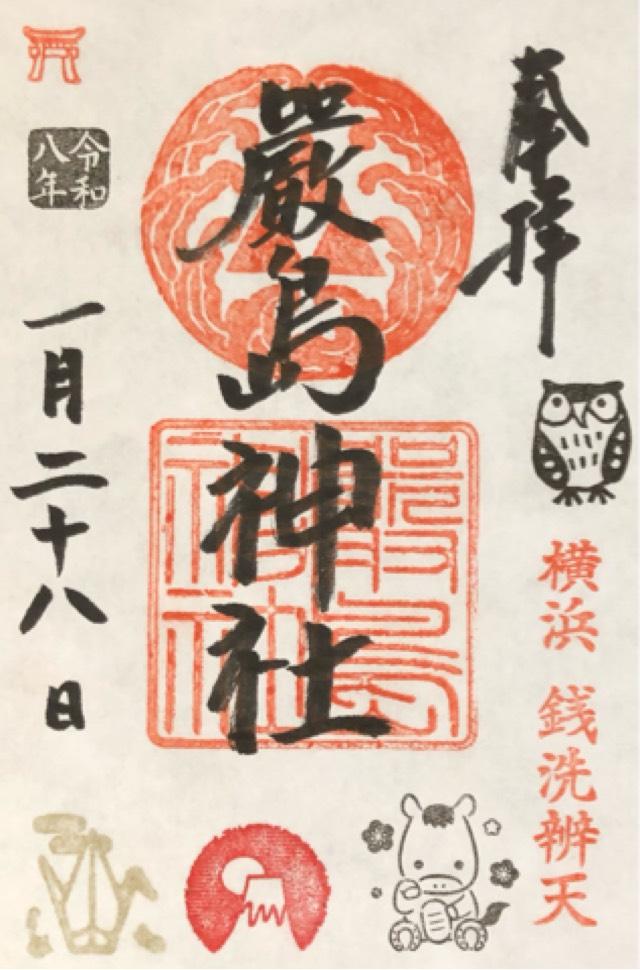 奉拝
横浜 銭洗辨天
嚴島神社
嚴島
神社
令和
八年
一月二十八日